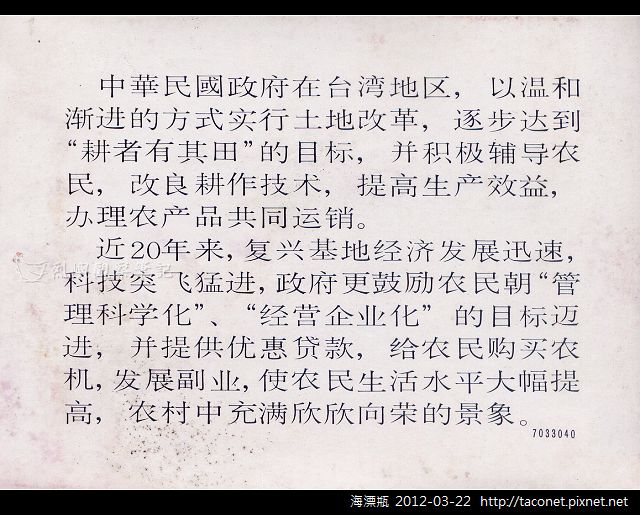 中華民國政府在台湾地区，以温和
渐进的方式实行土地改革，逐步达到
“耕者有其田”的目标，并积极辅导农
民，改良耕作技术，提高生产效益，
办理农产品共同运销。
近20年来，复兴基地经济发展迅速，
科技突飞猛进，政府更鼓励农民朝“管
理科学化”、“经营企业化”的目标迈
进，并提供优惠贷款，给农民购买农
机，发展副业，使农民生活水平大幅提
高，农村中充满欣欣向荣的景象。
7033040
海漂瓶 2012-03-22 http://taconet.pixnet.net